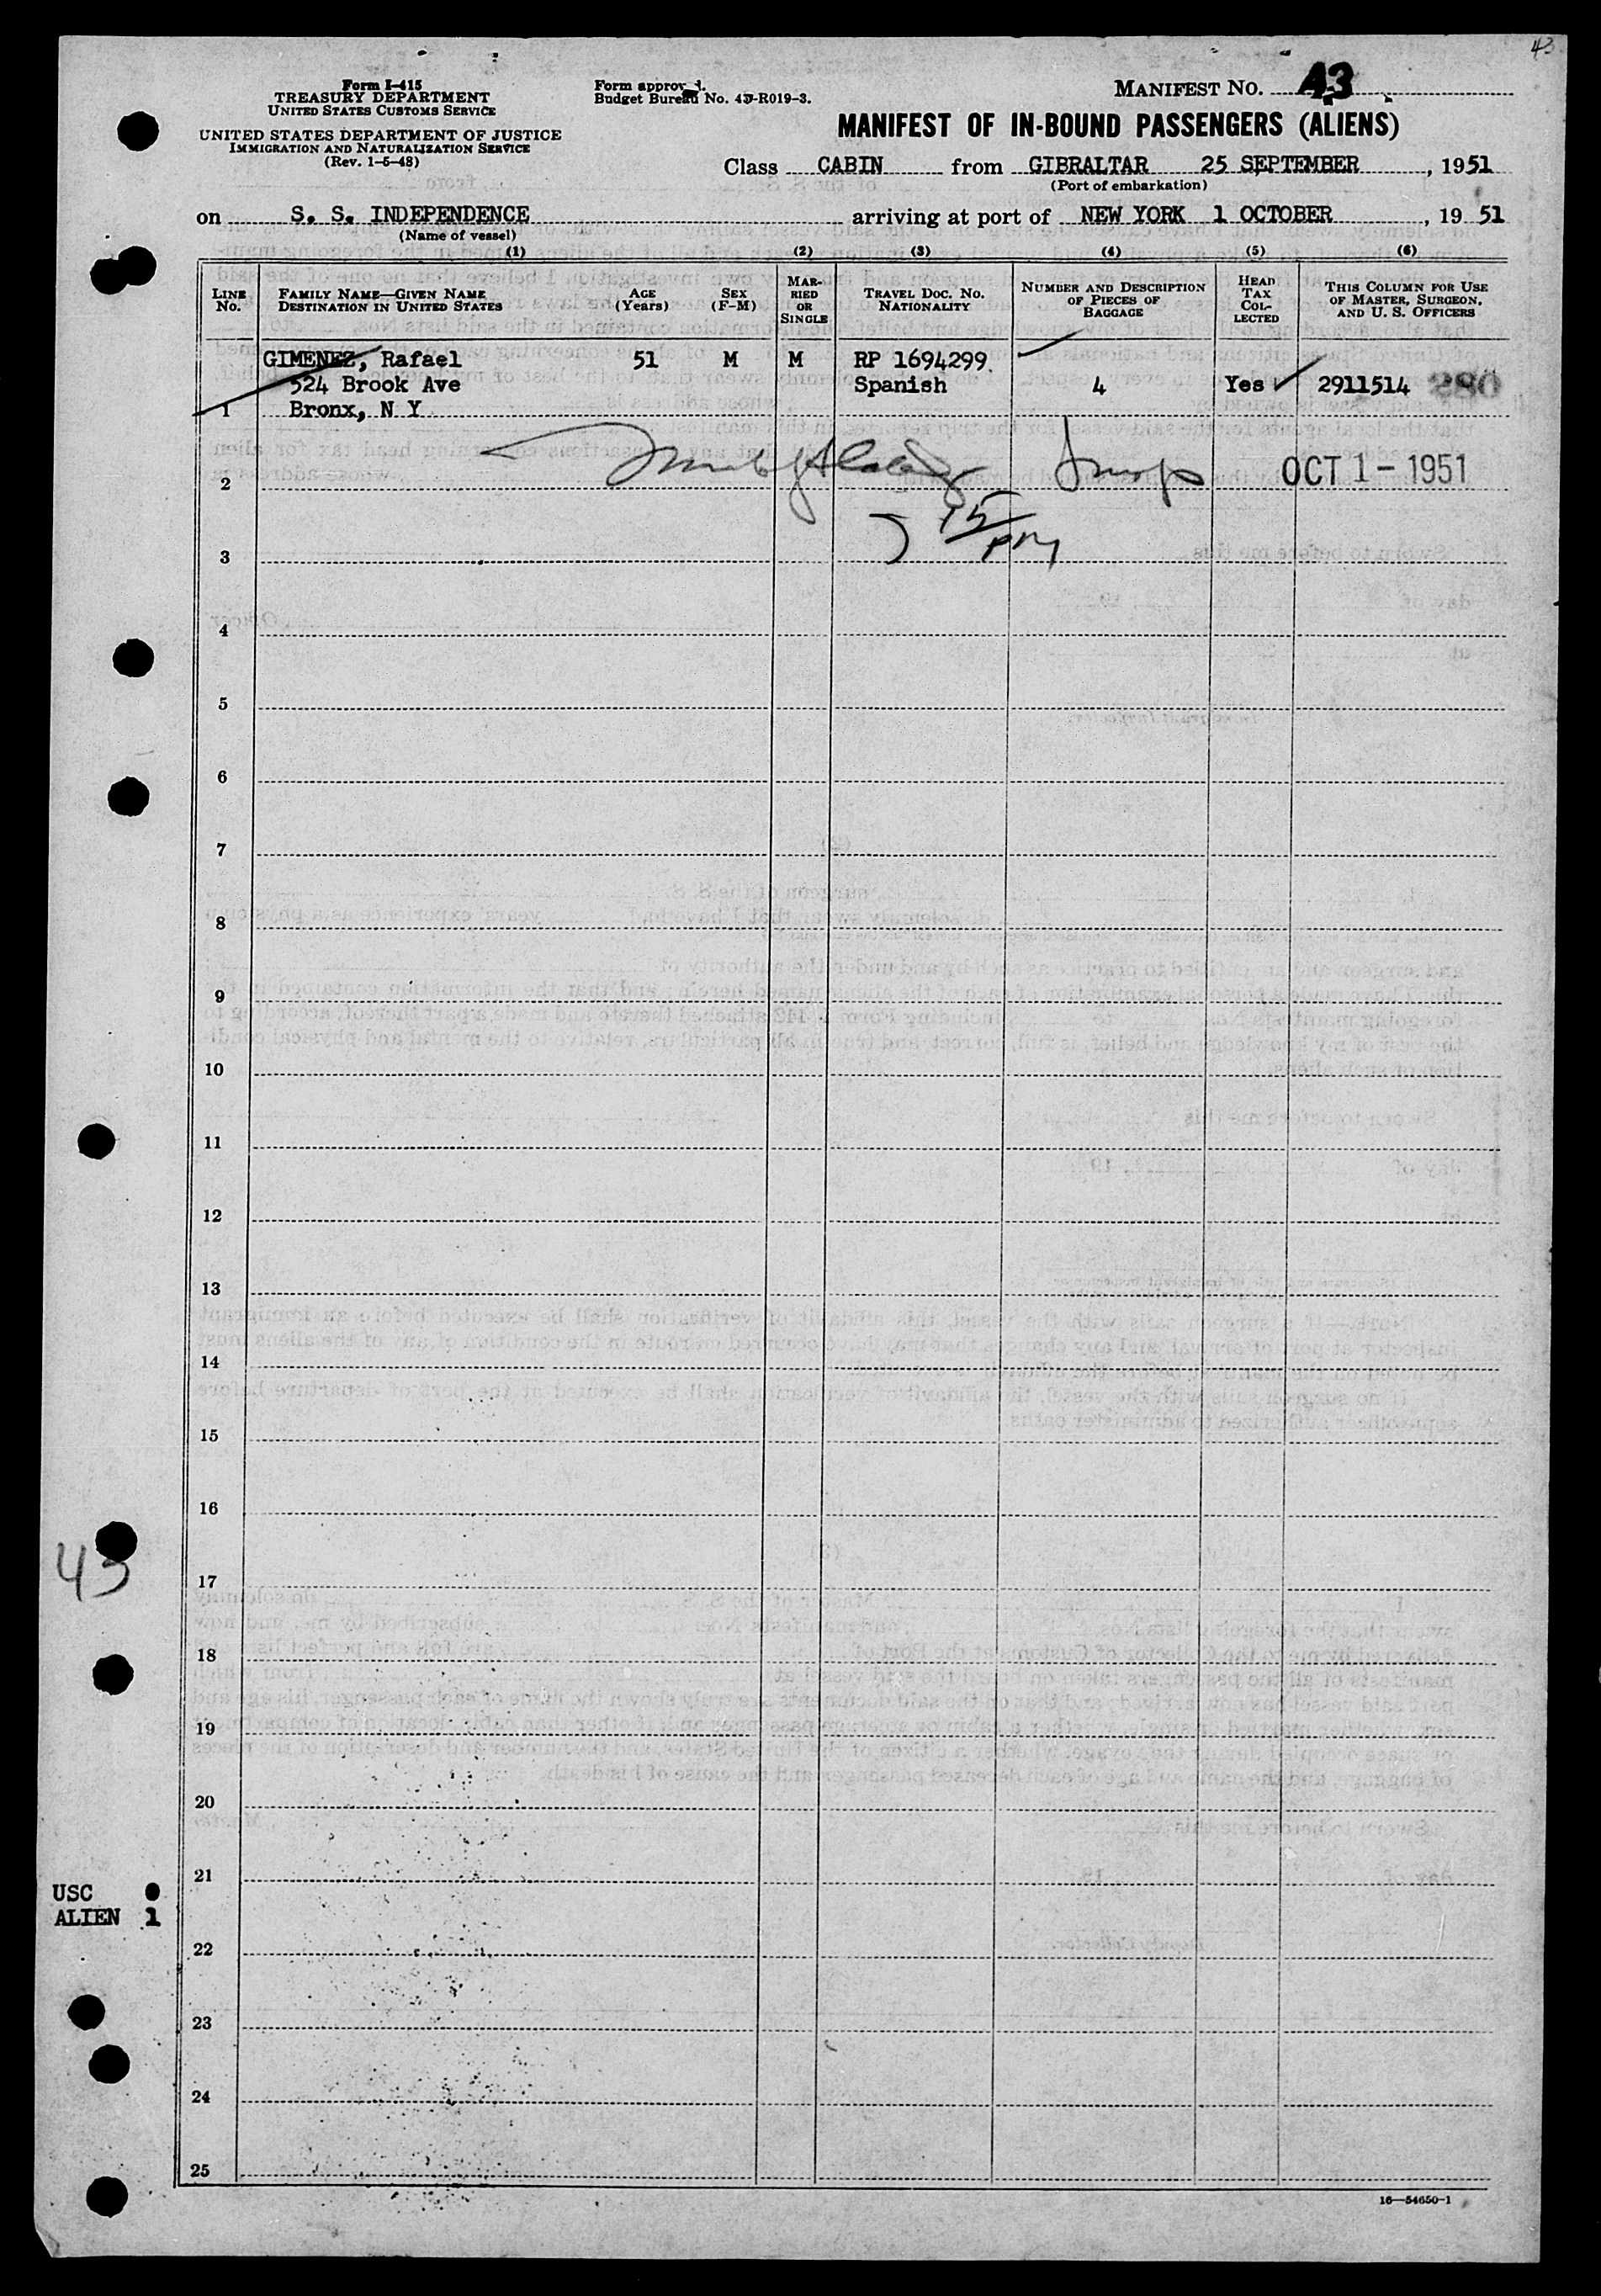 43
Form I-415
TREASURY DEPARTMENT
UNITED STATES CUSTOMS SERVICE
UNITED STATES DEPARTMENT OF JUSTICE
IMMIGRATION AND NATURALIZATION SERVICE
(Rev. 1-5-48)
Form approved.
Budget Bureau No. 43-R019-3.
MANIFEST No. 43
MANIFEST OF IN-BOUND PASSENGERS (ALIENS)
Class CABIN from GIBRALTAR 25 SEPTEMBER, 1951
(Port of embarkation)
on S. S. INDEPENDENCE arriving at port of NEW YORK 1 OCTOBER, 19 51
(Name of vessel)
(1) (2) (3) (4) (5) (6)
LINE No. FAMILY NAME—GIVEN NAME DESTINATION IN UNITED STATES AGE (Years) SEX (F-M) MARRIED OR SINGLE TRAVEL DOC. NO. NATIONALITY NUMBER AND DESCRIPTION OF PIECES OF BAGGAGE HEAD TAX COLLECTED THIS COLUMN FOR USE OF MASTER, SURGEON, AND U. S. OFFICERS
GIMENEZ, Rafael 51 M M RP 1694299
524 Brook Ave Spanish 4 Yes 2911514 280
1 Bronx, N Y
2 OCT 1 - 1951
3 PM
4
5
6
7
8
9
10
11
12
13
14
15
16
43
17
18
19
20
21
USC 0
ALIEN 1
22
23
24
25
16—54650-1